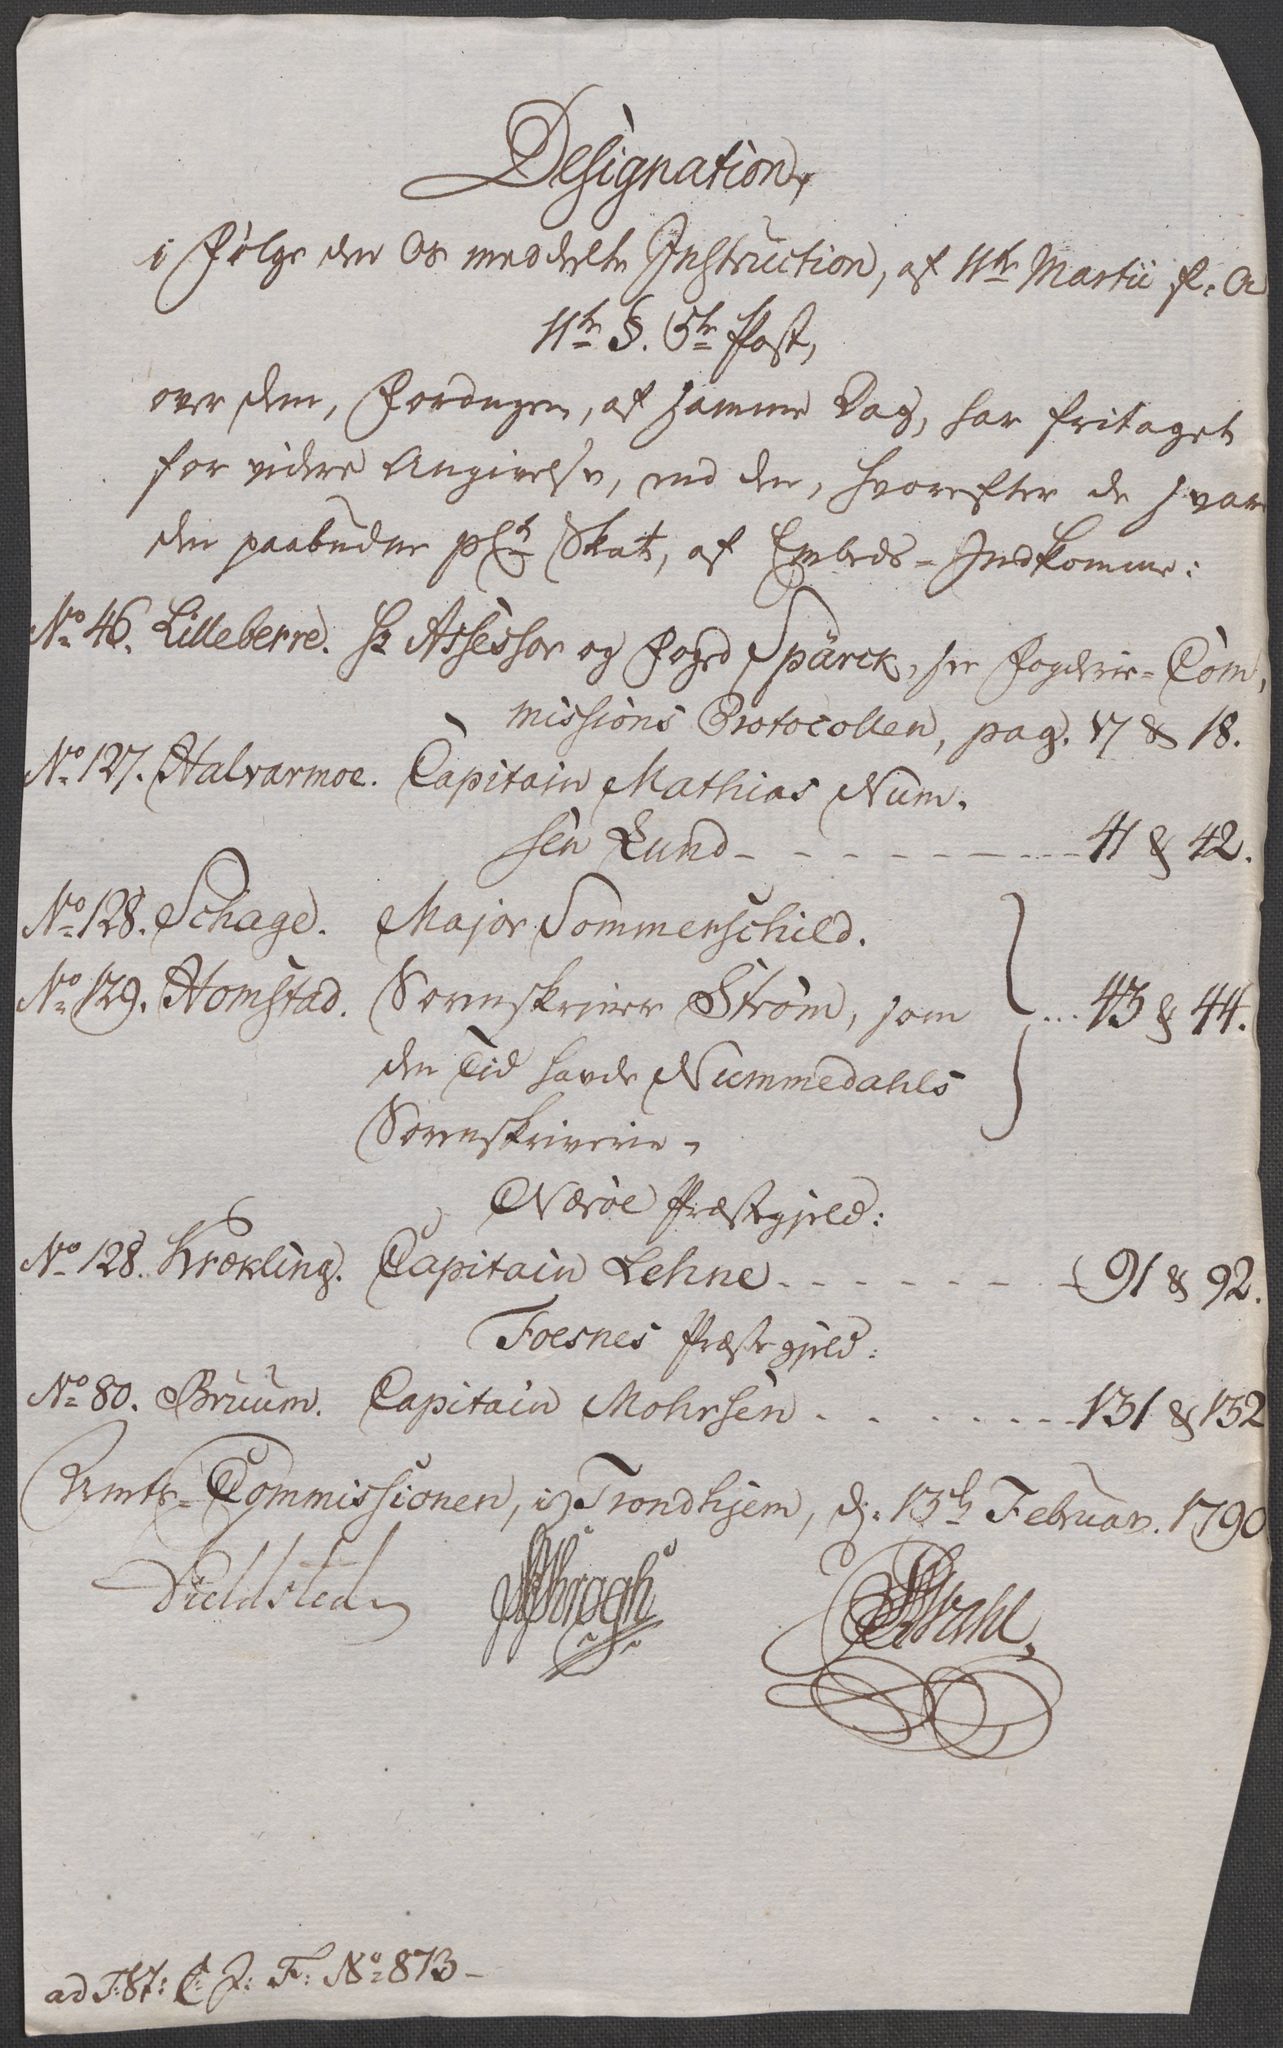 Designation,
i Følge den Os meddelte Instruction, af 11te Martii f: A
11te §. 5te Post,
over dem, Forordngen, af samme Dag, har fritaget
for videre Angivelse, end den, hvorefter de svare
den paabudne pCt Skat, af Embeds-Indkomme:
No 46. Lilleberre. Hr Assessor og Foged Spärck, see Fogderie-Com-
missions Protocollen, pag. 17 & 18.
No 127. Halvarmoe. Capitain Mathias Num-
sen Lund - - - - - - - - - 41 & 42.
No 128. Schage. Major Sommerschild.
No 129. Homstad. Sorenskriver Strøm, som ... 43 & 44.
den Tid havde Nummedahls
Sorenskriverie.
Nærøe Præstegjeld:
No 128. Krækling. Capitain Lehne - - - - - - - 91 & 92.
Foesnes Præstegjeld:
No 80. Bruum. Capitain Mohrsen - - - - - - - 131 & 132
Amts-Commissionen, i Trondhjem, d: 13de Februar. 1790
ad T: 87: C. J: F: No 873-